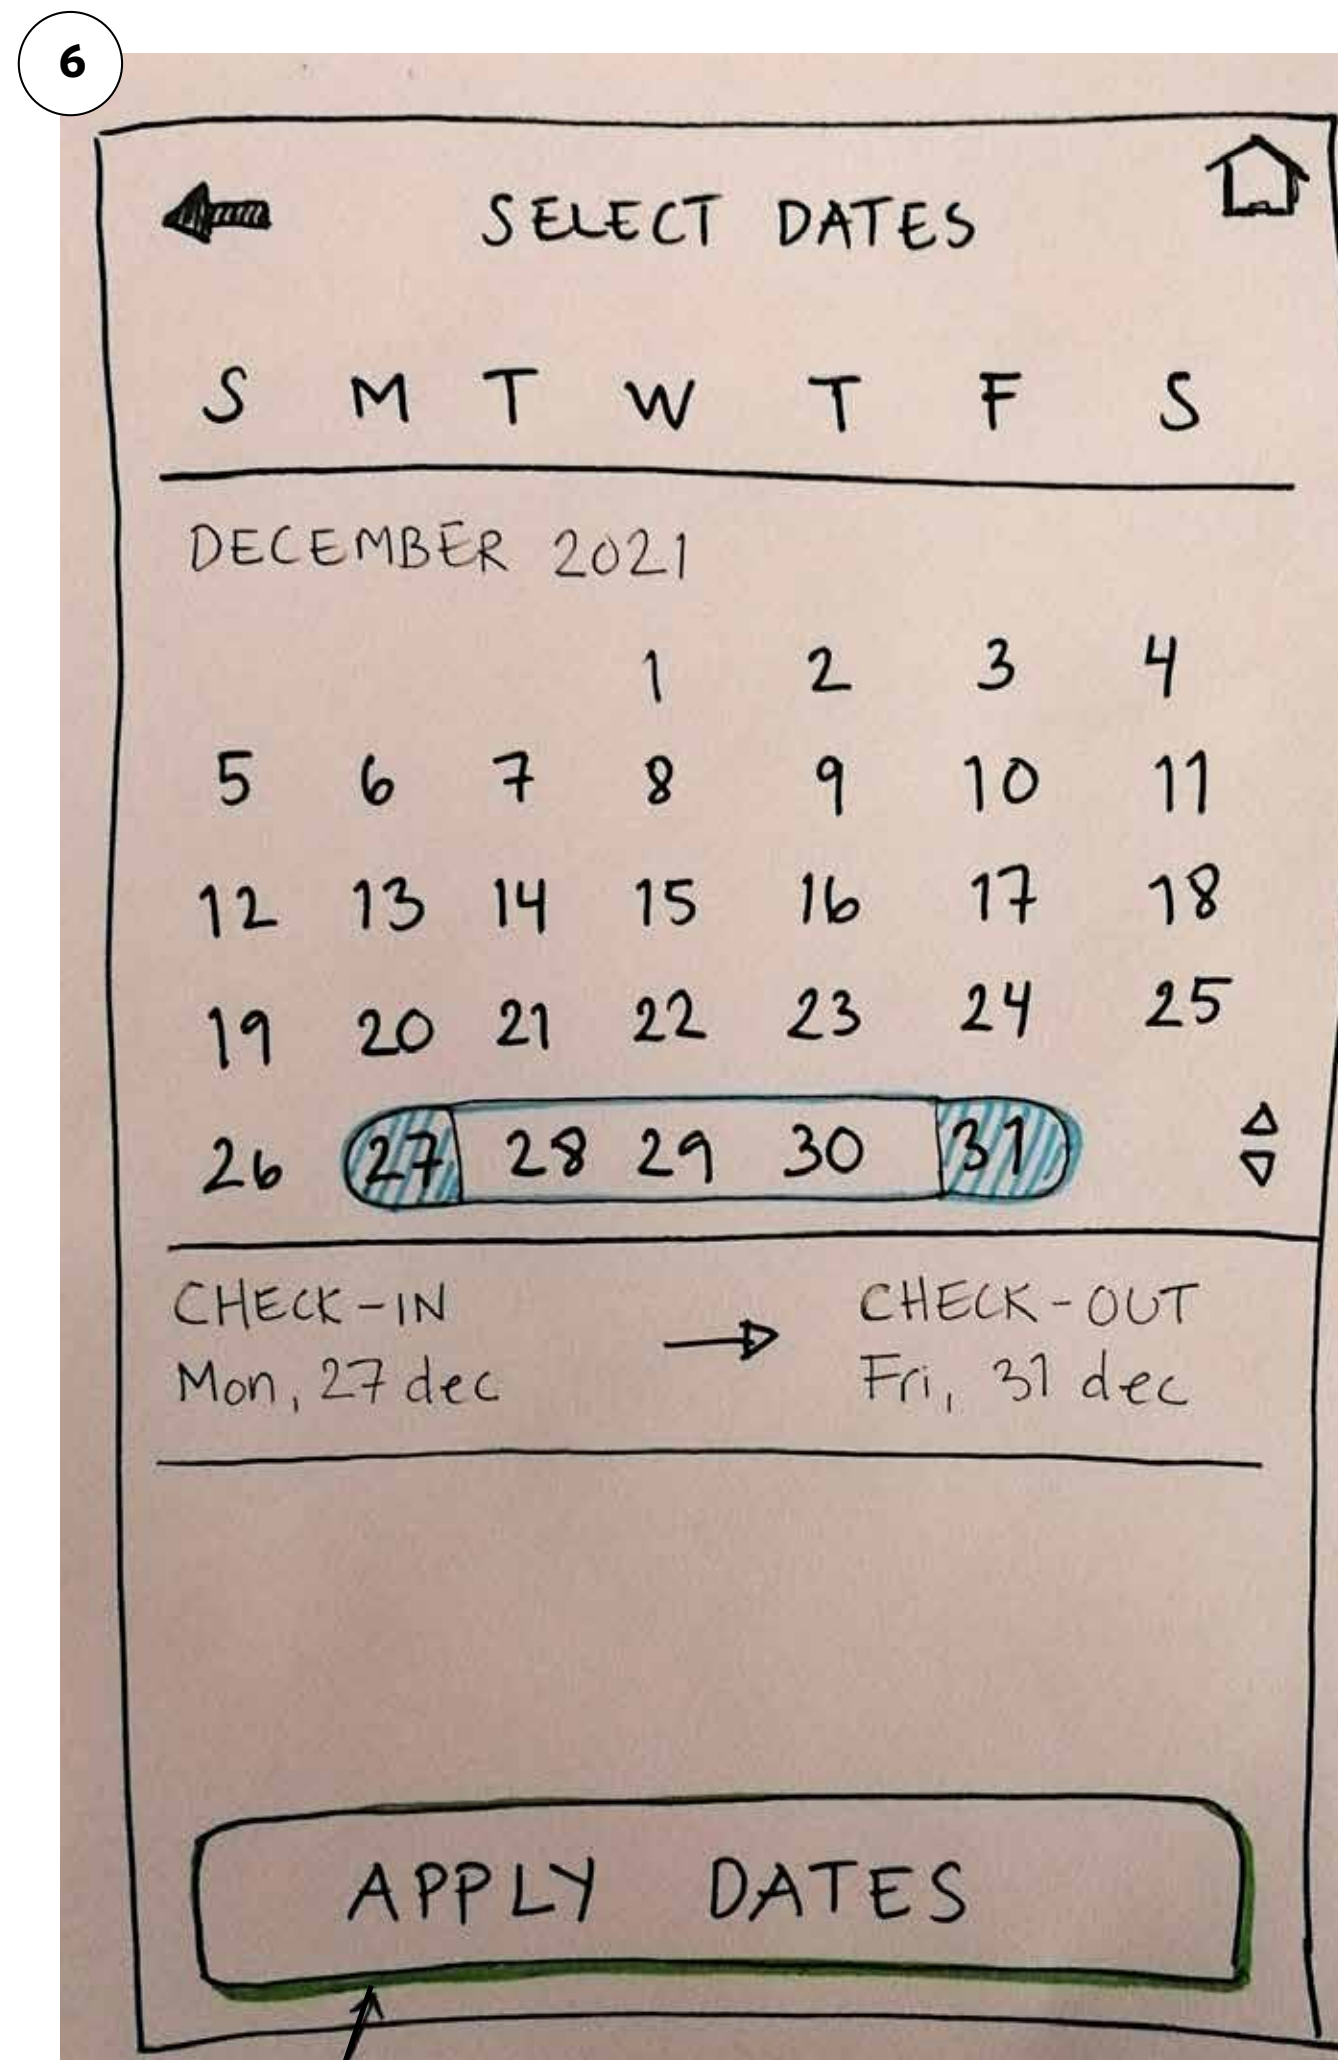 6
SELECT DATES
S M T W T F S
DECEMBER 2021
1 2 3 4
5 6 7 8 9 10 11
12 13 14 15 16 17 18
19 20 21 22 23 24 25
26 27 28 29 30 31
CHECK-IN CHECK-OUT
Mon, 27 dec Fri, 31 dec
APPLY DATES